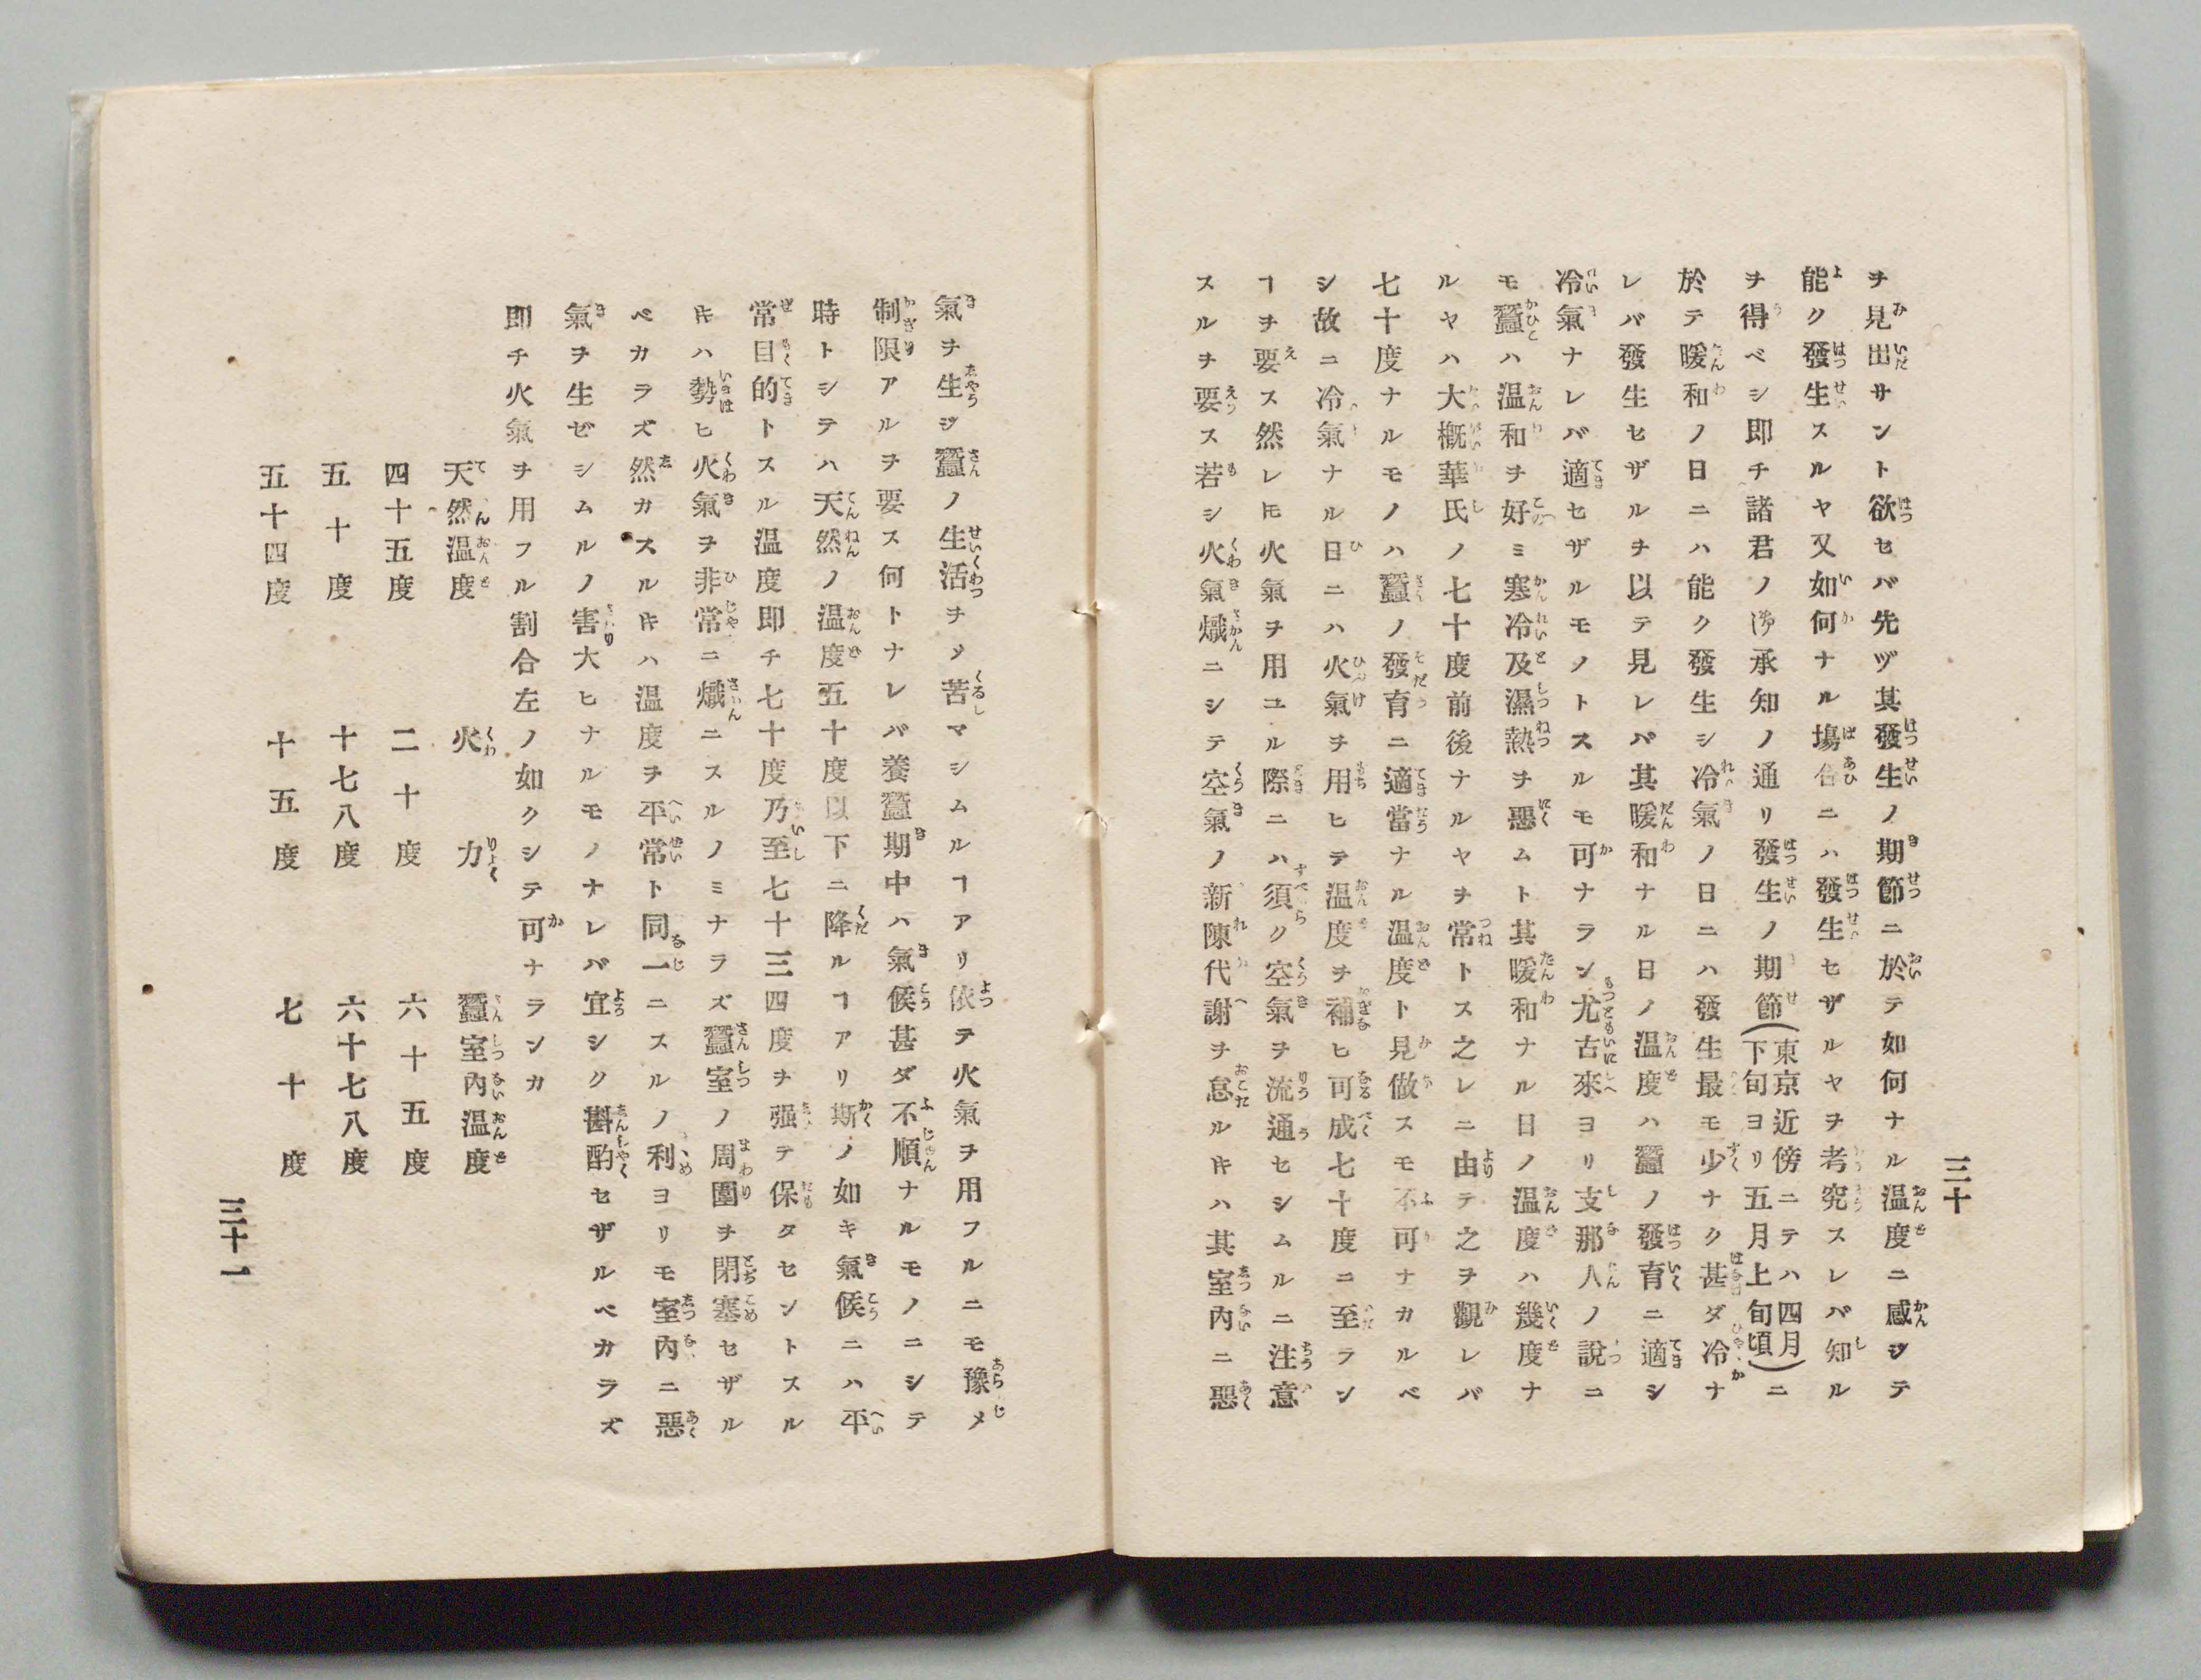 三十
ヲ見出サント欲セバ先ヅ其發生ノ期節ニ於テ如何ナル温度ニ感ジテ
能ク發生スルヤ又如何ナル塲合ニハ發生セザルヤヲ考究スレバ知ル
ヲ得ベシ即チ諸君ノ承知ノ通リ發生ノ期節(東京近傍ニテハ四月下旬ヨリ五月上旬頃)ニ
於テ暖和ノ日ニハ能ク發生シ冷氣ノ日ニハ發生最モ少ナク甚ダ冷ナ
レバ發生セザルヲ以テ見レバ其暖和ナル日ノ温度ハ蠶ノ發育ニ適シ
冷氣ナレバ適セザルモノトスルモ可ナラン尤古來ヨリ支那人ノ說ニ
モ蠶ハ温和ヲ好ミ寒冷及濕熱ヲ惡ムト其暖和ナル日ノ温度ハ幾度ナ
ルヤハ大概華氏ノ七十度前後ナルヤヲ常トス之レニ由テ之ヲ觀レバ
七十度ナルモノハ蠶ノ發育ニ適當ナル温度ト見做スモ不可ナカルベ
シ故ニ冷氣ナル日ニハ火氣ヲ用ヒテ温度ヲ補ヒ可成七十度ニ至ラン
ヿヲ要ス然レ𪜈火氣ヲ用ユル際ニハ須ク空氣ヲ流通セシムルニ注意
スルヲ要ス若シ火氣熾ニシテ空氣ノ新陳代謝ヲ怠ルキハ其室內ニ惡
氣ヲ生ジ蠶ノ生活ヲメ苦マシムルヿアリ依テ火氣ヲ用フルニモ豫メ
制限アルヲ要ス何トナレバ養蠶期中ハ氣候甚ダ不順ナルモノニシテ
時トシテハ天然ノ温度五十度以下ニ降ルヿアリ斯ノ如キ氣候ニハ平
常目的トスル温度即チ七十度乃至七十三四度ヲ强テ保タセントスル
キハ勢ヒ火氣ヲ非常ニ熾ニスルノミナラズ蠶室ノ周圍ヲ閉塞セザル
ベカラズ然カスルキハ温度ヲ平常ト同一ニスルノ利ヨリモ室內ニ惡
氣ヲ生ゼシムルノ害大ヒナルモノナレバ宜シク斟酌セザルベカラズ
即チ火氣ヲ用フル割合左ノ如クシテ可ナランカ
天然温度　火力　蠶室內温度
四十五度　二十度　六十五度
五十度　十七八度　六十七八度
五十四度　十五度　七十度
三十一